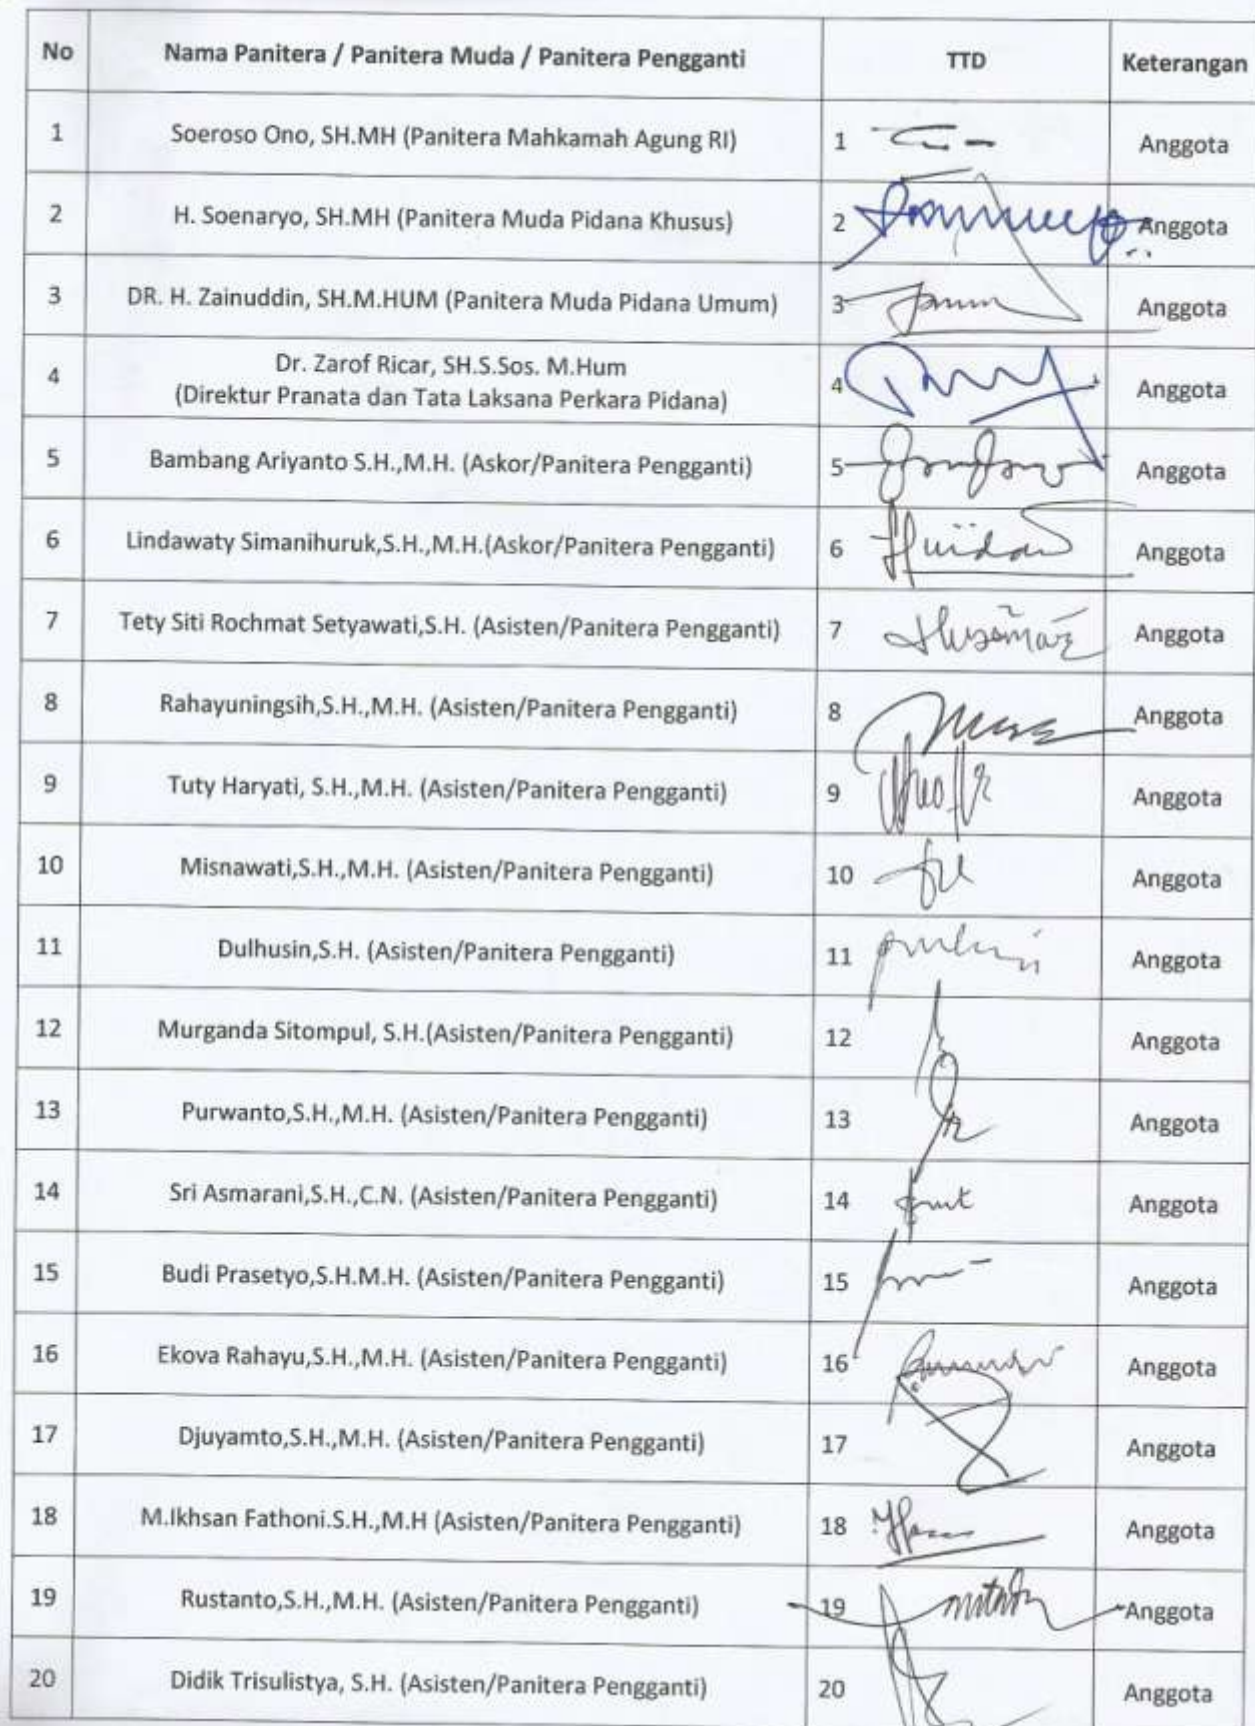 No Nama Panitera / Panitera Muda / Panitera Pengganti TTD Keterangan
1 Soeroso Ono, SH.MH (Panitera Mahkamah Agung RI) 1 Anggota
2 H. Soenaryo, SH.MH (Panitera Muda Pidana Khusus) 2 Anggota
3 DR. H. Zainuddin, SH.M.HUM (Panitera Muda Pidana Umum) 3 Anggota
4 Dr. Zarof Ricar, SH.S.Sos. M.Hum
(Direktur Pranata dan Tata Laksana Perkara Pidana) 4 Anggota
5 Bambang Ariyanto S.H.,M.H. (Askor/Panitera Pengganti) 5 Anggota
6 Lindawaty Simanihuruk,S.H.,M.H.(Askor/Panitera Pengganti) 6 Anggota
7 Tety Siti Rochmat Setyawati,S.H. (Asisten/Panitera Pengganti) 7 Anggota
8 Rahayuningsih,S.H.,M.H. (Asisten/Panitera Pengganti) 8 Anggota
9 Tuty Haryati, S.H.,M.H. (Asisten/Panitera Pengganti) 9 Anggota
10 Misnawati,S.H.,M.H. (Asisten/Panitera Pengganti) 10 Anggota
11 Dulhusin,S.H. (Asisten/Panitera Pengganti) 11 Anggota
12 Murganda Sitompul, S.H.(Asisten/Panitera Pengganti) 12 Anggota
13 Purwanto,S.H.,M.H. (Asisten/Panitera Pengganti) 13 Anggota
14 Sri Asmarani,S.H.,C.N. (Asisten/Panitera Pengganti) 14 Anggota
15 Budi Prasetyo,S.H.M.H. (Asisten/Panitera Pengganti) 15 Anggota
16 Ekova Rahayu,S.H.,M.H. (Asisten/Panitera Pengganti) 16 Anggota
17 Djuyamto,S.H.,M.H. (Asisten/Panitera Pengganti) 17 Anggota
18 M.Ikhsan Fathoni.S.H.,M.H (Asisten/Panitera Pengganti) 18 Anggota
19 Rustanto,S.H.,M.H. (Asisten/Panitera Pengganti) 19 Anggota
20 Didik Trisulistya, S.H. (Asisten/Panitera Pengganti) 20 Anggota